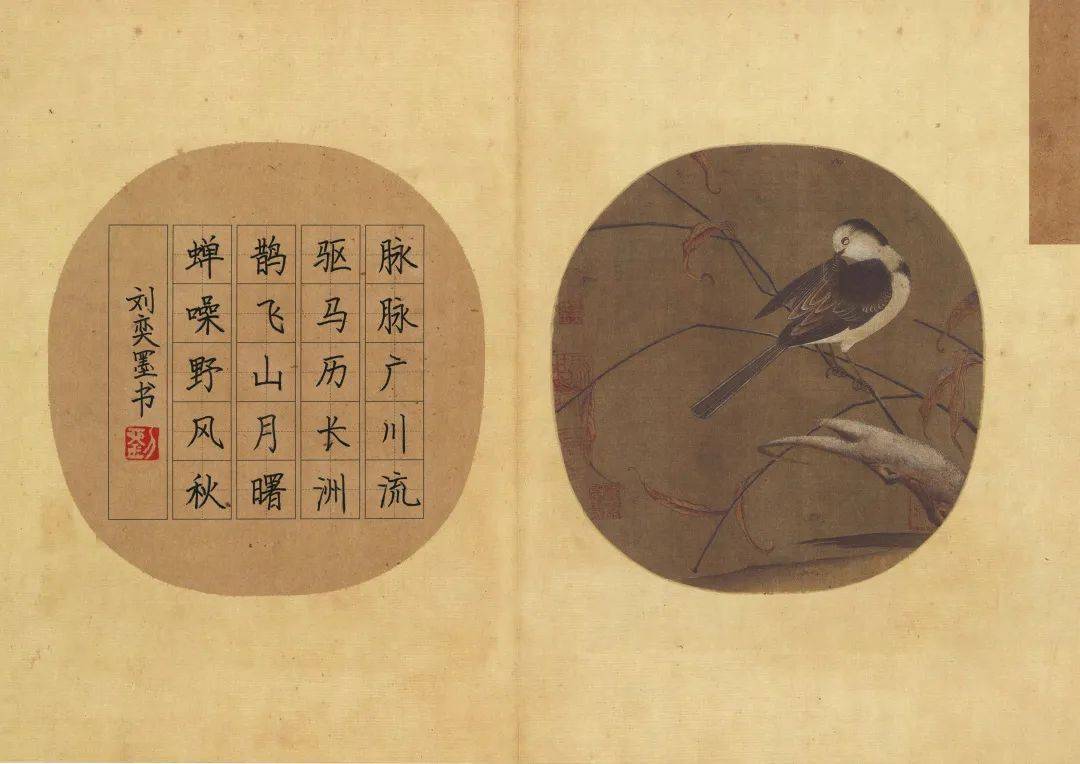 脉脉广川流
驱马历长洲
鹊飞山月曙
蝉噪野风秋
刘奕墨书
劉